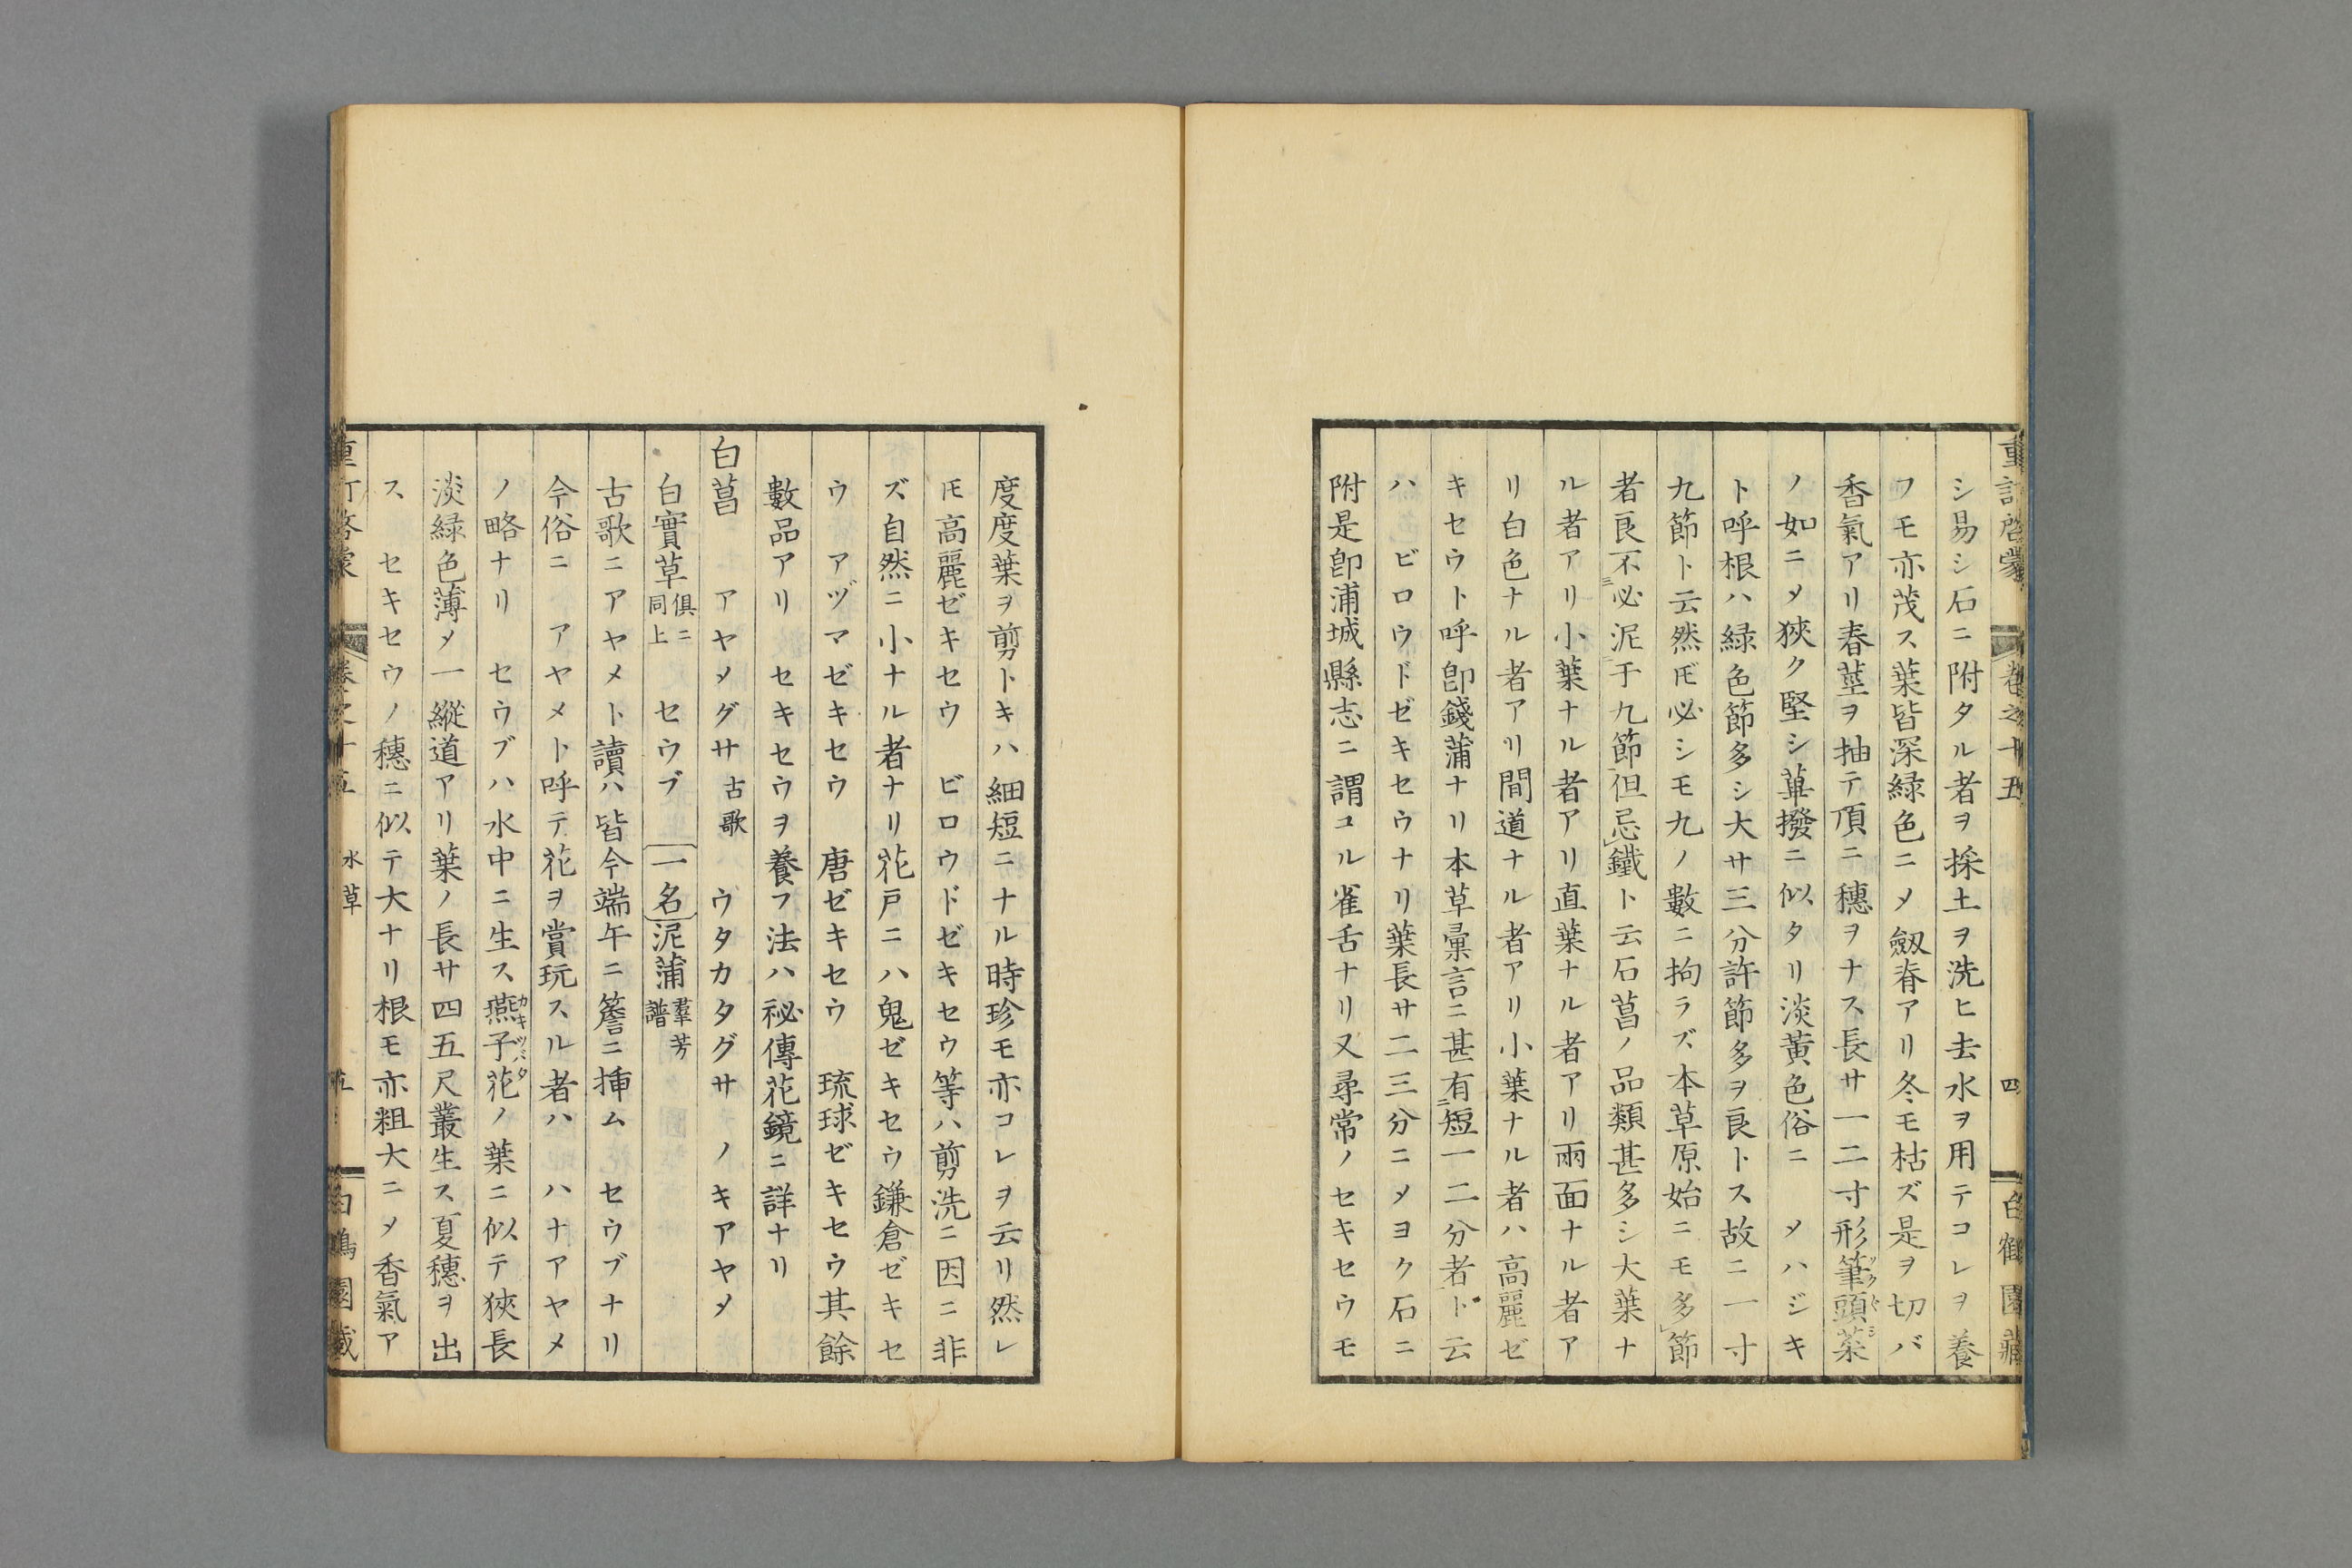 重訂啓蒙　卷之十五　四　白鶴園藏
シ易シ石ニ附タル者ヲ採土ヲ洗ヒ去水ヲ用テコレヲ養
フモ亦茂ス葉皆深緑色ニメ劔脊アリ冬モ枯ズ是ヲ切バ
香氣アリ春莖ヲ抽テ頂ニ穗ヲナス長サ一二寸形筆頭菜
ノ如ニメ狹ク堅シ蓽撥ニ似タリ淡黃色俗ニ　メハジキ
ト呼根ハ緑色節多シ大サ三分許節多ヲ良トス故ニ一寸
九節ト云然𪜈必シモ九ノ數ニ拘ラズ本草原始ニモ多節
者良不必泥于九節但忌鐵ト云石菖ノ品類甚多シ大葉ナ
ル者アリ小葉ナル者アリ直葉ナル者アリ兩面ナル者ア
リ白色ナル者アリ間道ナル者アリ小葉ナル者ハ高麗ゼ
キセウト呼卽錢蒲ナリ本草彙言ニ甚有短一二分者ト云
ハ　ビロウドゼキセウナリ葉長サ二三分ニメヨク石ニ
附是卽浦城縣志ニ謂ユル雀舌ナリ又尋常ノセキセウモ
度度葉ヲ剪トキハ細短ニナル時珍モ亦コレヲ云リ然レ
𪜈高麗ゼキセウ　ビロウドゼキセウ等ハ剪洗ニ因ニ非
ズ自然ニ小ナル者ナリ花戸ニハ鬼ゼキセウ鎌倉ゼキセ
ウ　アヅマゼキセウ　唐ゼキセウ　琉球ゼキセウ其餘
數品アリ　セキセウヲ養フ法ハ祕傳花鏡ニ詳ナリ
白菖　アヤメグサ古歌　ウタカタグサ　ノキアヤメ
白實草俱ニ同上　セウブ　一名泥蒲羣芳譜
古歌ニアヤメト讀ハ皆今端午ニ簷ニ揷ム　セウブナリ
今俗ニ　アヤメト呼テ花ヲ賞玩スル者ハ　ハナアヤメ
ノ略ナリ　セウブハ水中ニ生ス燕子花ノ葉ニ似テ狹長
淡緑色薄メ一縱道アリ葉ノ長サ四五尺叢生ス夏穗ヲ出
ス　セキセウノ穗ニ似テ大ナリ根モ亦粗大ニメ香氣ア
重訂啓蒙　卷之十五　水草　五　白鶴園藏